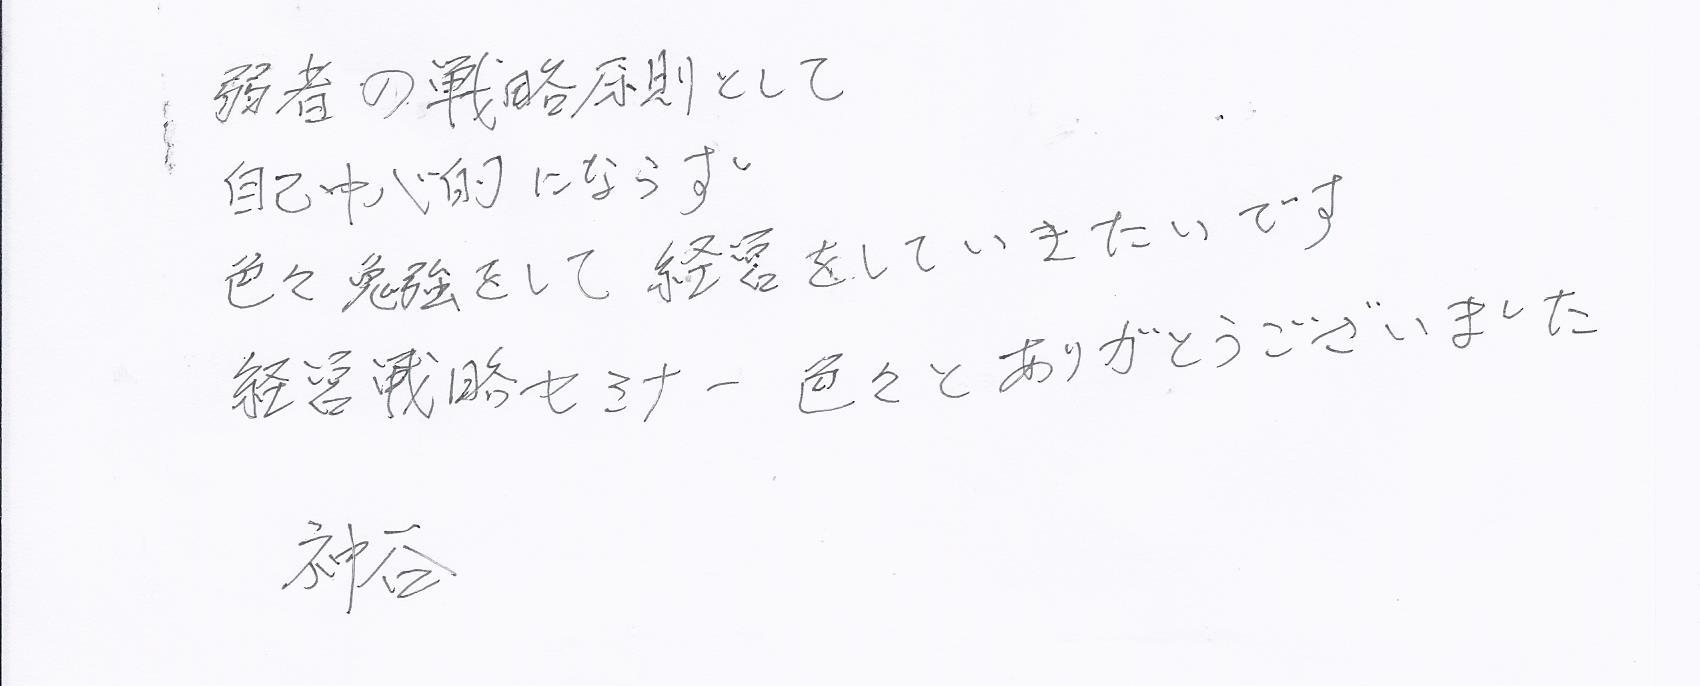 弱者の戦略原則として
自己中心的にならず
色々勉強をして経営をしていきたいです
経営戦略セミナー色々とありがとうございました
神谷